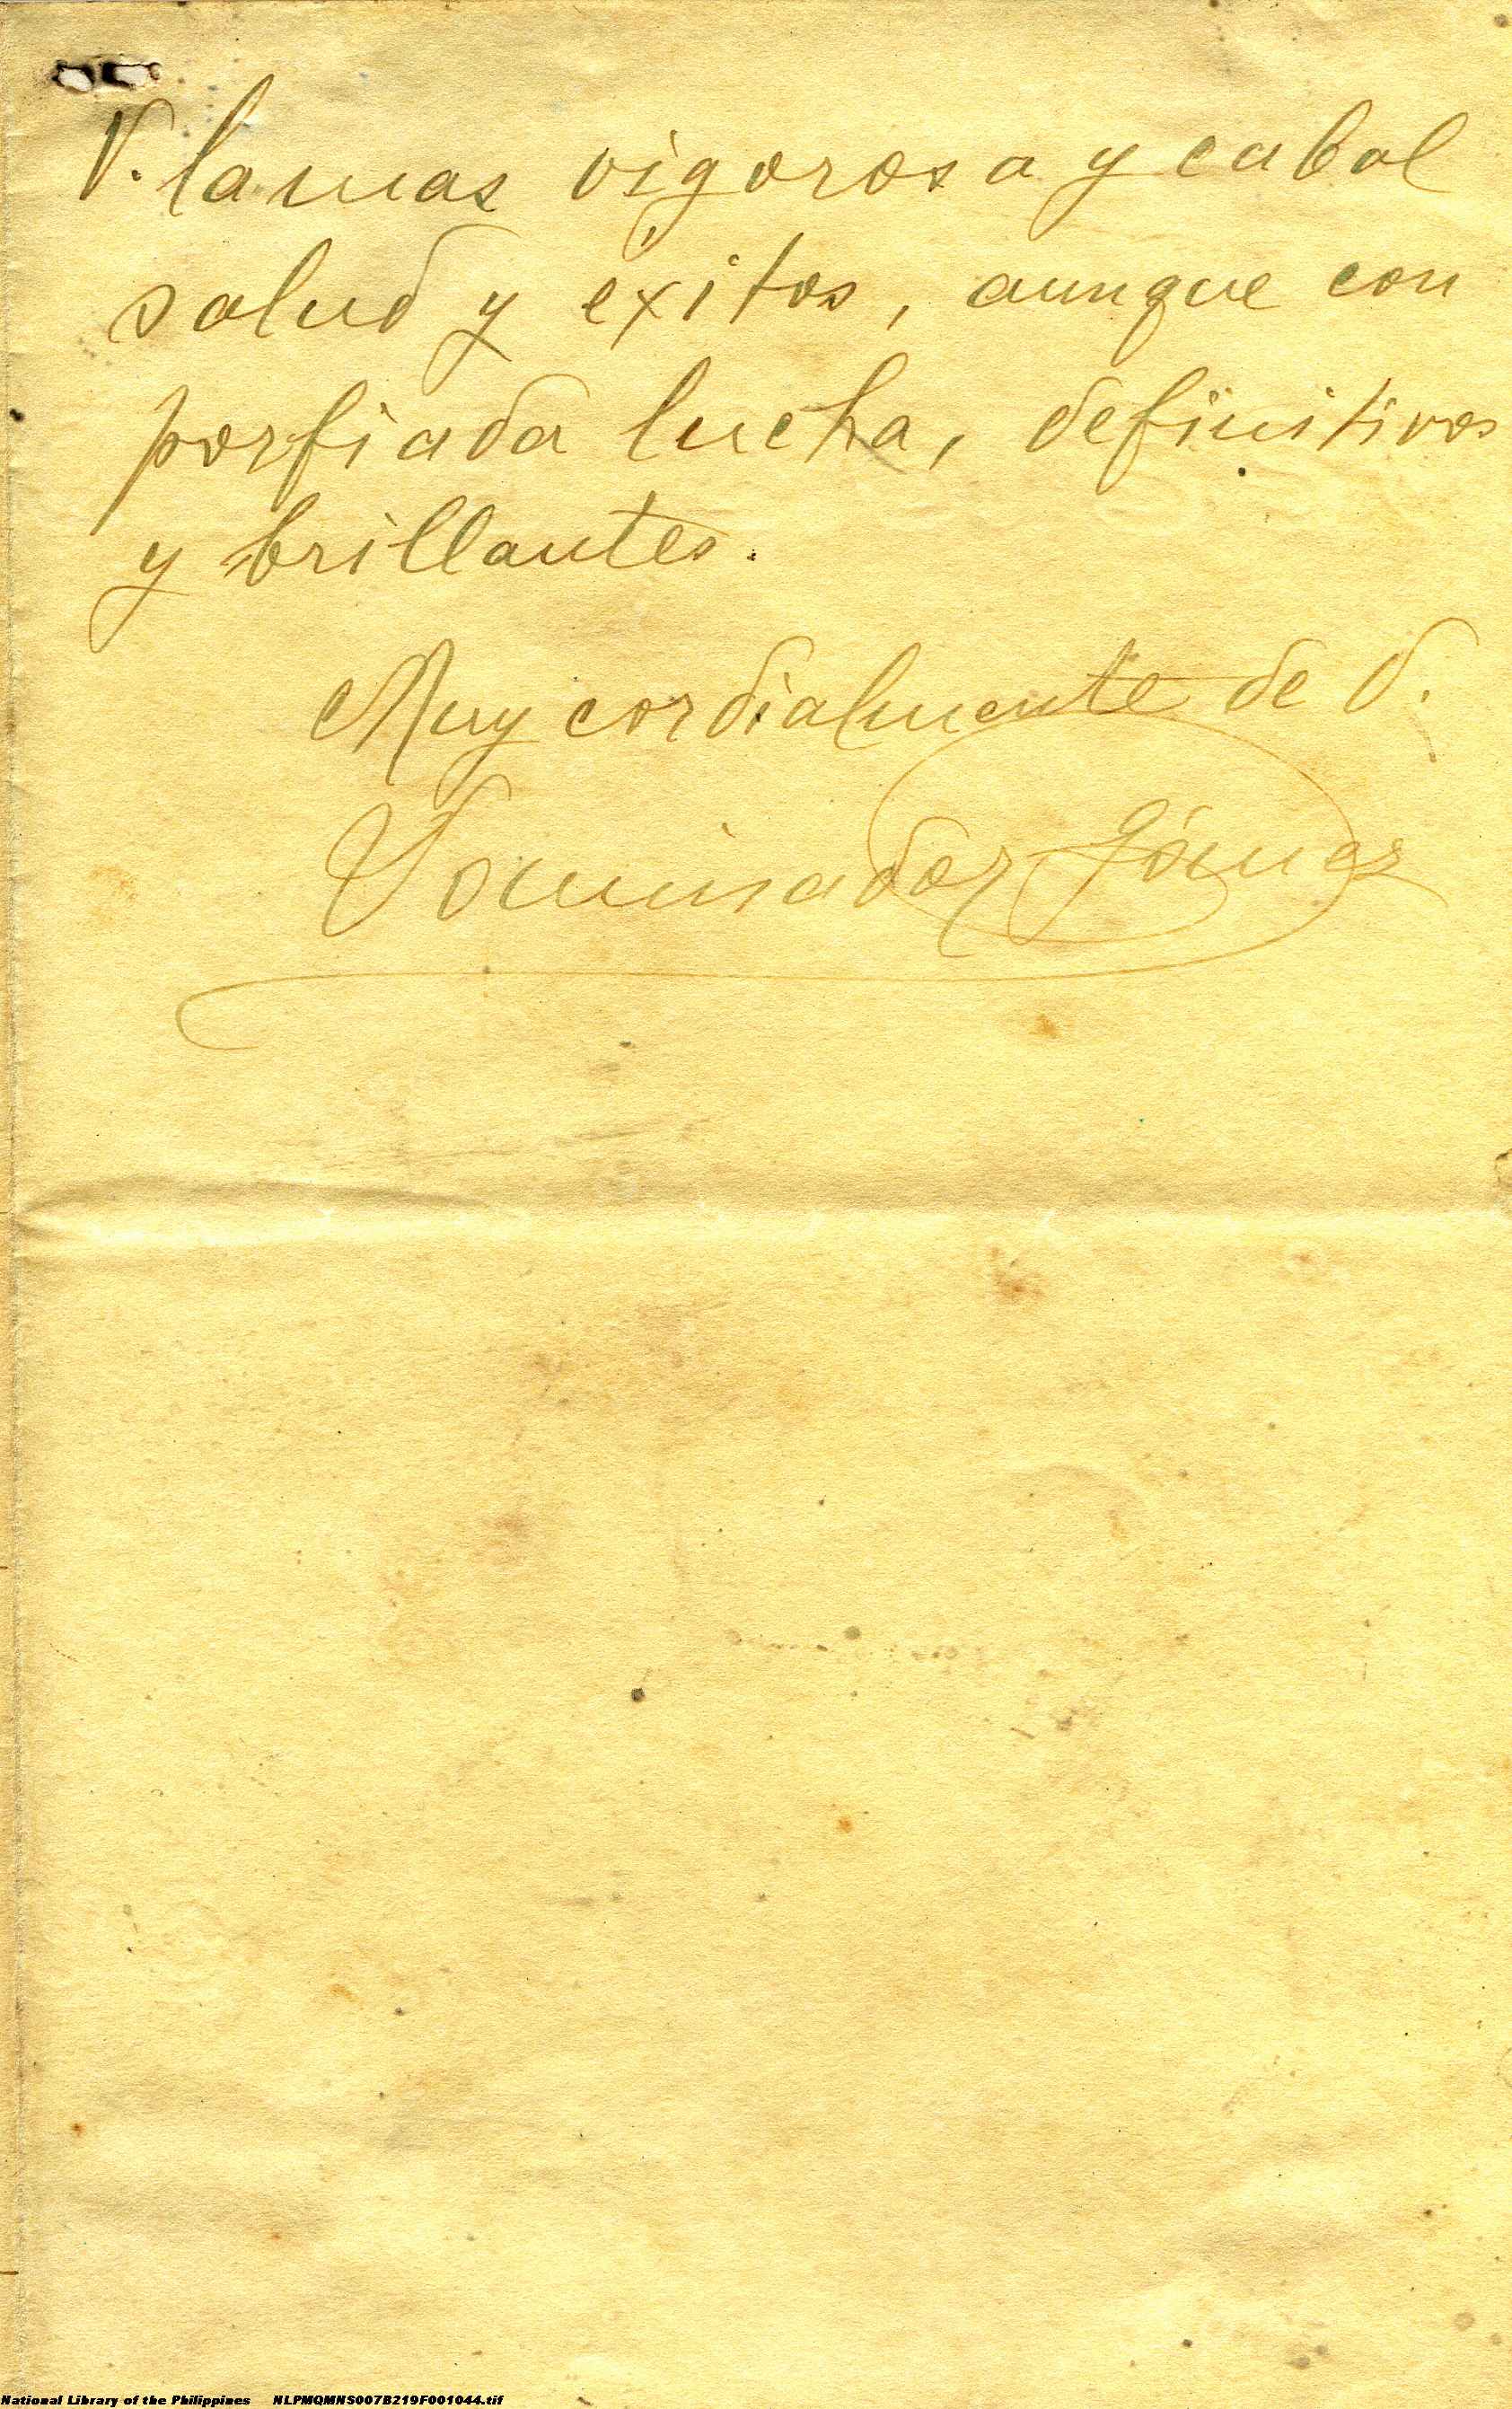 V. la mas vigorosa y cabal
salud y éxitos, aunque con
porfiada lucha, definitivos
y brillantes.
Muy cordialmente de V.
Dominador Gómez
National Library of the Philippines NLPMQMNS007B219F001044.tif